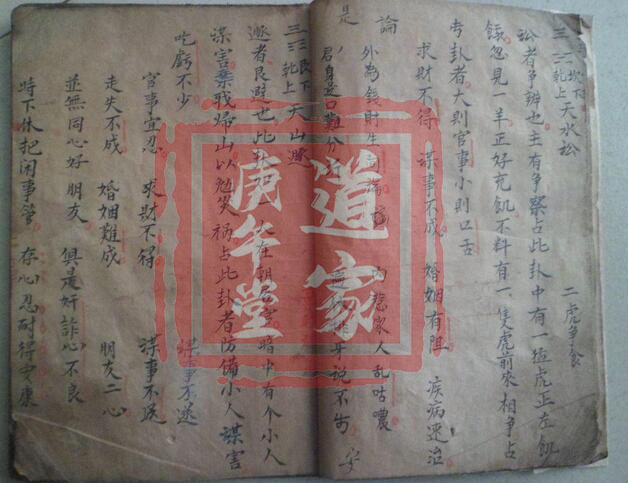 坎下
乾上 天水訟 二虎争食
訟者争辨也主有争察占此卦中有一猹虎正在飢
餓忽見一羊正好充飢不料有一隻虎前來相争占
此卦者大則官事小則口舌
求財不得 謀事不成 婚姻有阻 疾病速治
論
外為錢財生 内 家人乱咕噥
是
君身 口難 身说不 安
艮下
乾上 天山遯
遯者艮避也此 大在朝 暗中有个小人
謀害棄戰婦山以勉災禍占此卦者防備小人謀害
吃虧不少 謀事不遂
官事宜忍 求財不得 謀事不遂
走失不成 婚姻難成 朋友二心
並無同心好朋友 俱是奸詐心不良
時下休把闲事管 存心忍耐得安康
道家
庚午堂